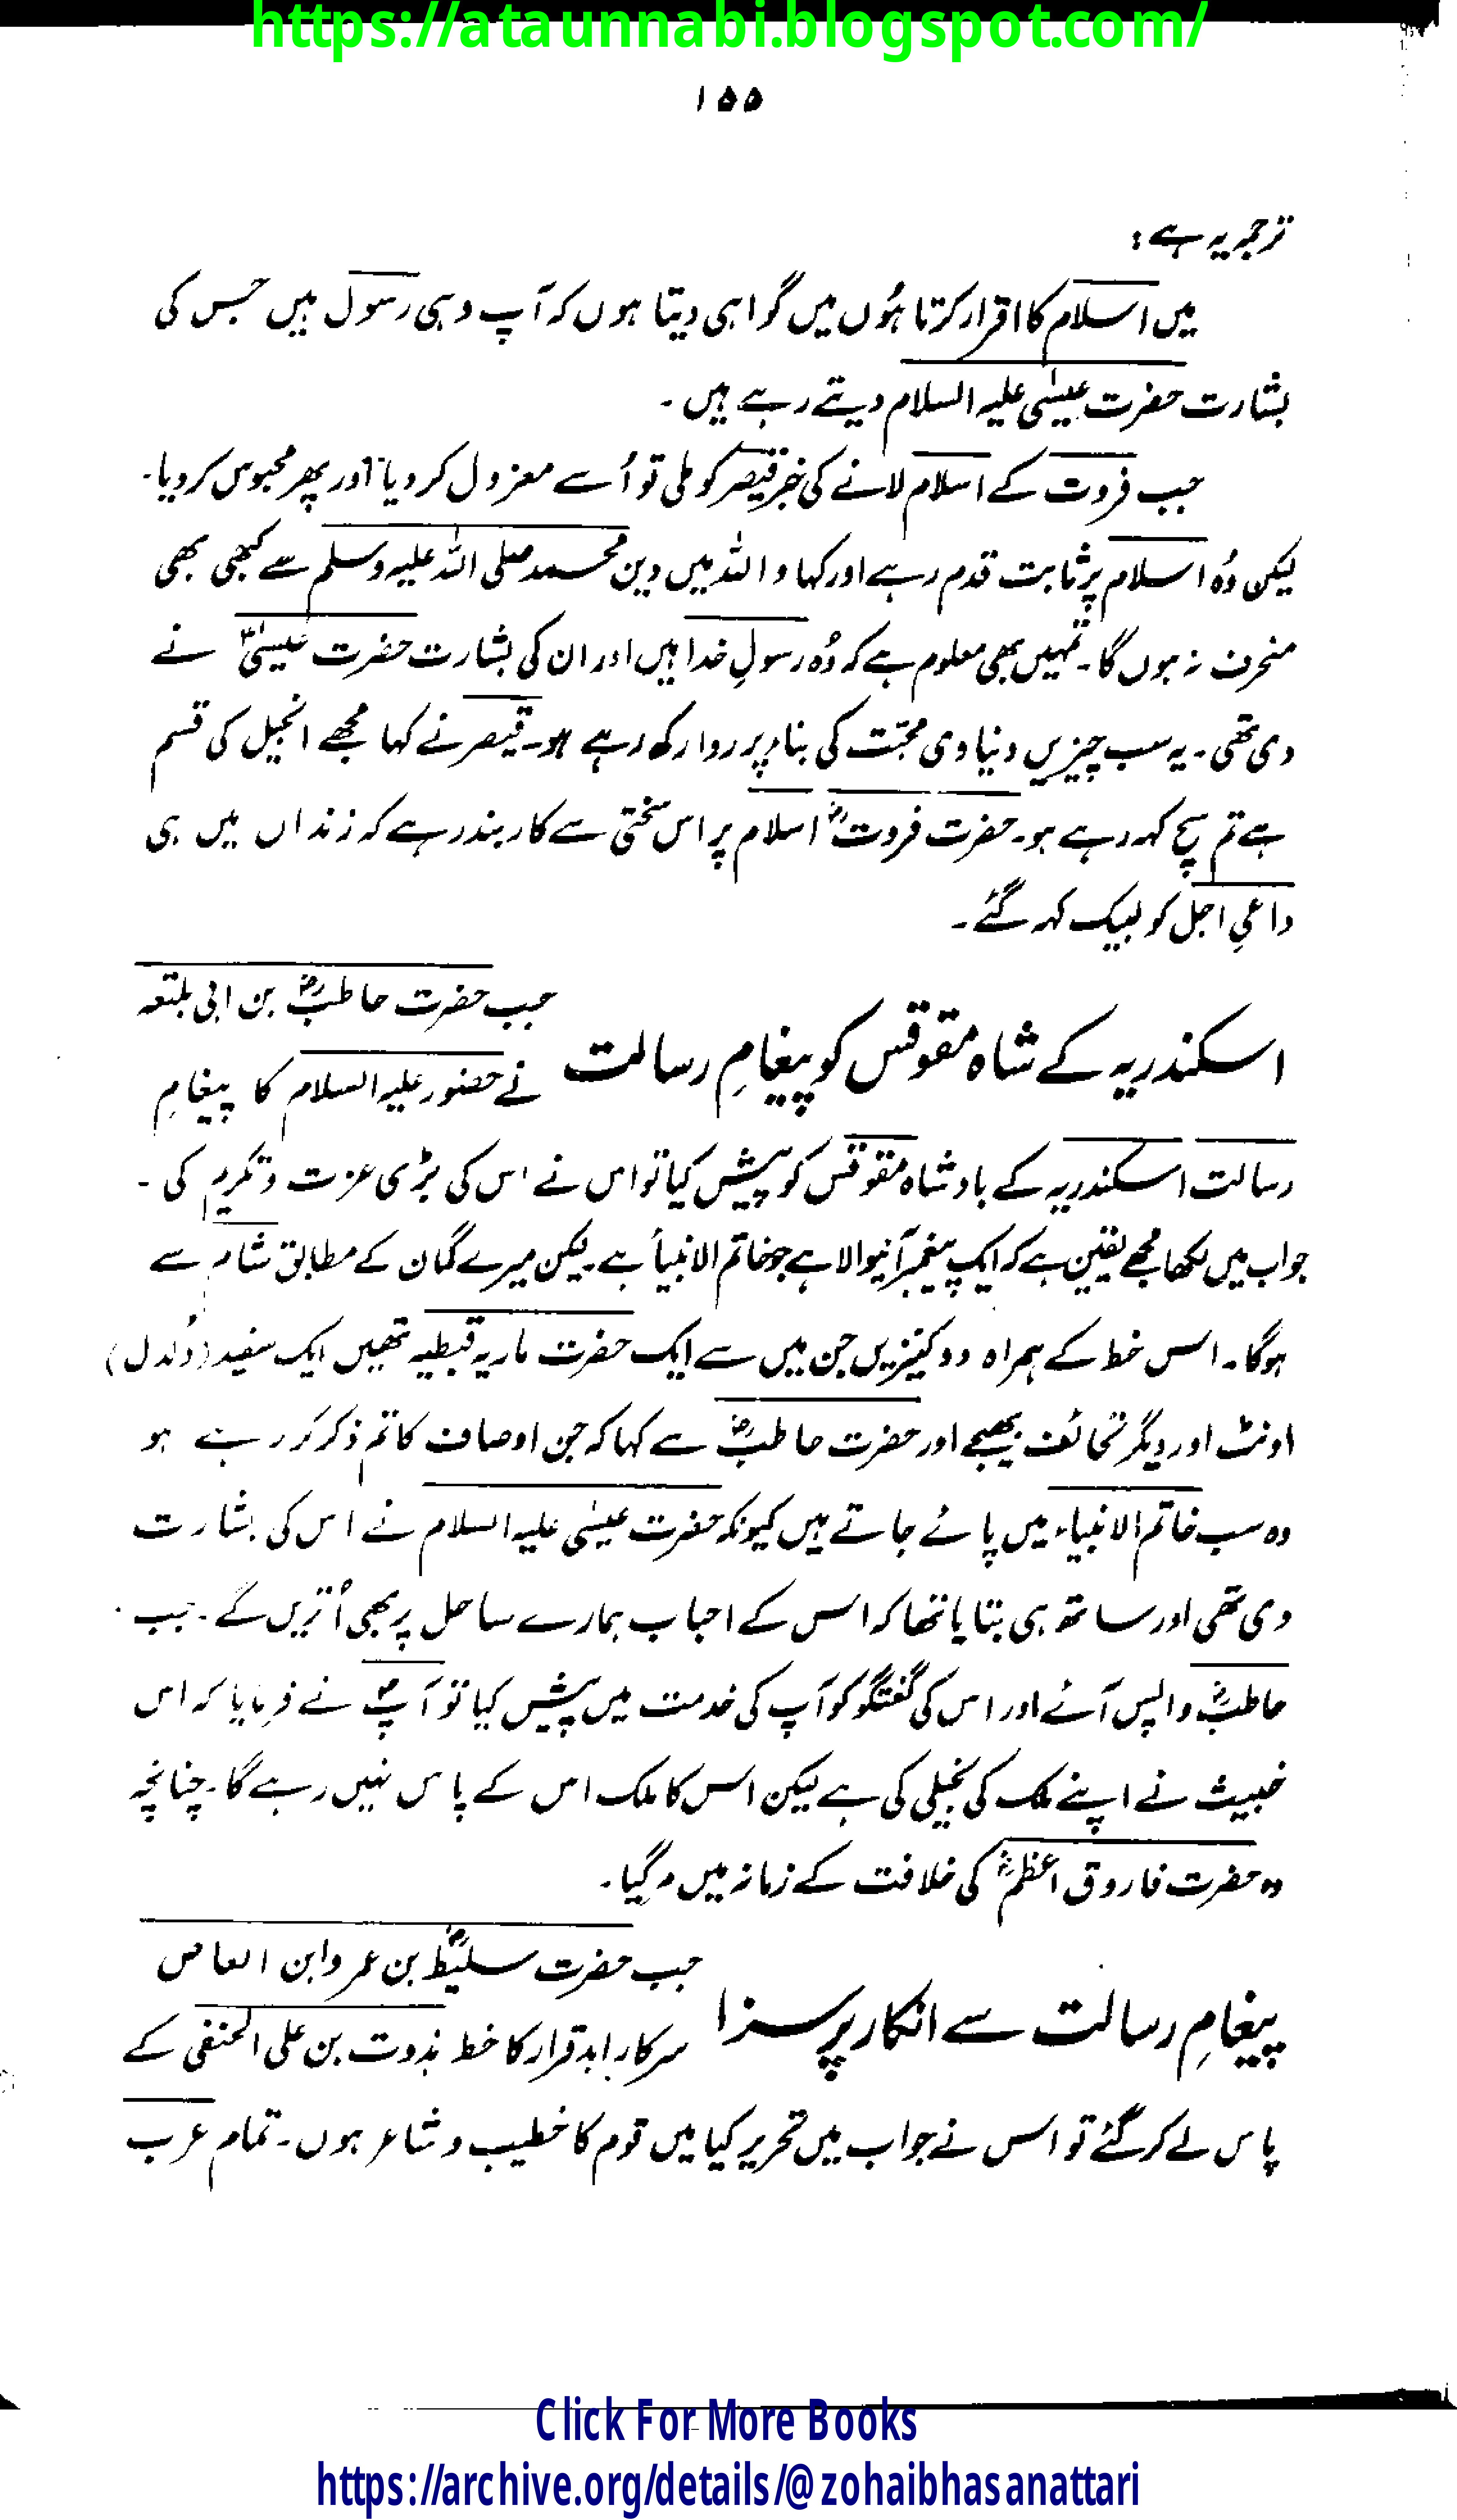 https://ataunnabi.blogspot.com/
۱۵۵
ترجمہ یہ ہے :
میں اسلام کا اقرار کرتا ہُوں میں گواہی دیتا ہوں کہ آپ وہی رسول ہیں جس کی
بشارت حضرت عیسٰی علیہ السلام دیتے رہے ہیں ۔
جب فروت کے اسلام لانے کی خبر قیصر کو ملی تو اُسے معزول کر دیا اور پھر محبوس کر دیا۔
لیکن وُہ اسلام پر ثابت قدم رہے اور کہا واللہ میں دین محمد صلی اللہ علیہ وسلم سے کبھی بھی
منحرف نہ ہوں گا۔ تمہیں بھی معلوم ہے کہ وُہ رسولِ خدا ہیں اور ان کی بشارت حضرت عیسٰیؑ نے
دی تھی ۔ یہ سب چیزیں دنیاوی محبّت کی بناء پر روا رکھ رہے ہو۔ قیصر نے کہا مجھے انجیل کی قسم
ہے تم سچ کہہ رہے ہو۔ حضرت فروتؓ اسلام پر اس سختی سے کاربند رہے کہ زنداں میں ہی
داعیِ اجل کو لبیک کہہ گئے ۔
اسکندریہ کے شاہ مقوقس کو پیغامِ رسالت
جب حضرت حاطبؓ بن ابی بلتعہ
نے حضور علیہ السلام کا پیغامِ
رسالت اسکندریہ کے بادشاہ مقوقس کو پیش کیا تو اس نے اس کی بڑی عزت و تکریم کی ۔
جواب میں لکھا مجھے یقین ہے کہ ایک پیغمبر آنیوالا ہے جو خاتم الانبیأ ہے۔ لیکن میرے گمان کے مطابق شام سے
ہوگا۔ اس خط کے ہمراہ دو کنیزیں جن میں سے ایک حضرت ماریہ قبطیہ تھیں ایک سفید (دُلدل)
اونٹ اور دیگر تحائف بھیجے اور حضرت حاطبؓ سے کہا کہ جن اوصاف کا تم ذکر کر رہے ہو
وہ سب خاتم الانبیاء میں پائے جاتے ہیں کیونکہ حضرت عیسٰی علیہ السلام نے اس کی بشارت
دی تھی اور ساتھ ہی بتایا تھا کہ اس کے احباب ہمارے ساحل پر بھی اُتریں گے ۔ جب
حاطبؓ واپس آئے اور اس کی گفتگو کو آپ کی خدمت میں پیش کیا تو آپؐ نے فرمایا کہ اس
خبیث نے اپنے ملک کی بخیلی کی ہے لیکن اس کا ملک اس کے پاس نہیں رہے گا۔ چنانچہ
وہ حضرت فاروق اعظمؓ کی خلافت کے زمانہ میں مرگیا۔
پیغامِ رسالت سے انکار پر سزا
جب حضرت سلیطؓ بن عمرو ابن العاص
سرکار ابد قرار کا خط ہذوت بن علی الحنفی کے
پاس لے کر گئے تو اس نے جواب میں تحریر کیا میں قوم کا خطیب و شاعر ہوں۔ تمام عرب
Click For More Books
https://archive.org/details/@zohaibhasanattari